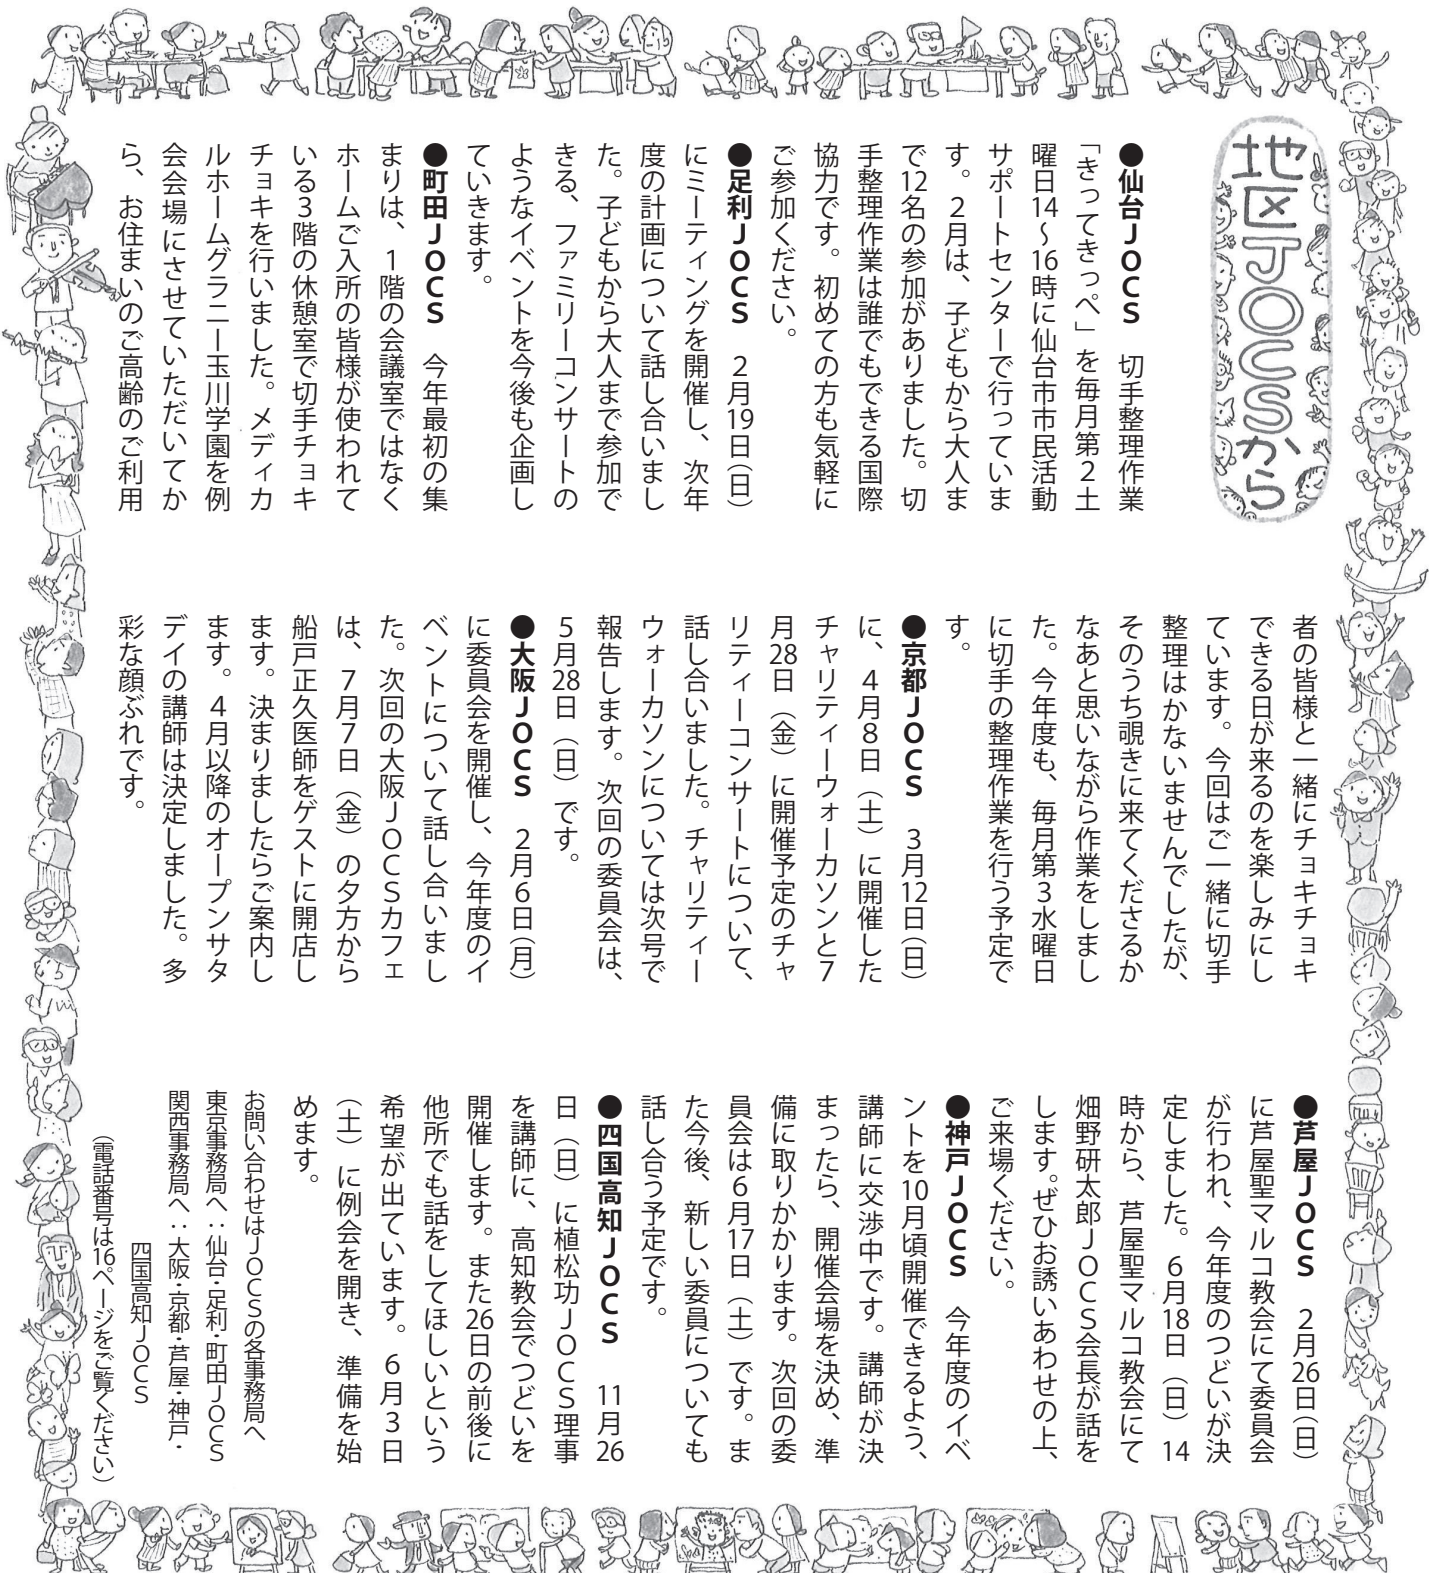 地区JOCSから
●仙台JOCS　切手整理作業
「きってきっぺ」を毎月第2土
曜日14〜16時に仙台市市民活動
サポートセンターで行っていま
す。2月は、子どもから大人ま
で12名の参加がありました。切
手整理作業は誰でもできる国際
協力です。初めての方も気軽に
ご参加ください。
●足利JOCS　2月19日(日)
にミーティングを開催し、次年
度の計画について話し合いまし
た。子どもから大人まで参加で
きる、ファミリーコンサートの
ようなイベントを今後も企画し
ていきます。
●町田JOCS　今年最初の集
まりは、1階の会議室ではなく
ホームご入所の皆様が使われて
いる3階の休憩室で切手チョキ
チョキを行いました。メディカ
ルホームグラニー玉川学園を例
会会場にさせていただいてか
ら、お住まいのご高齢のご利用
者の皆様と一緒にチョキチョキ
できる日が来るのを楽しみにし
ています。今回はご一緒に切手
整理はかないませんでしたが、
そのうち覗きに来てくださるか
なあと思いながら作業をしまし
た。今年度も、毎月第3水曜日
に切手の整理作業を行う予定で
す。
●京都JOCS　3月12日(日)
に、4月8日（土）に開催した
チャリティーウォーカソンと7
月28日（金）に開催予定のチャ
リティーコンサートについて、
話し合いました。チャリティー
ウォーカソンについては次号で
報告します。次回の委員会は、
5月28日（日）です。
●大阪JOCS　2月6日(月)
に委員会を開催し、今年度のイ
ベントについて話し合いまし
た。次回の大阪JOCSカフェ
は、7月7日（金）の夕方から
船戸正久医師をゲストに開店し
ます。決まりましたらご案内し
ます。4月以降のオープンサタ
デイの講師は決定しました。多
彩な顔ぶれです。
●芦屋JOCS　2月26日(日)
に芦屋聖マルコ教会にて委員会
が行われ、今年度のつどいが決
定しました。6月18日（日）14
時から、芦屋聖マルコ教会にて
畑野研太郎JOCS会長が話を
します。ぜひお誘いあわせの上、
ご来場ください。
●神戸JOCS　今年度のイベ
ントを10月頃開催できるよう、
講師に交渉中です。講師が決
まったら、開催会場を決め、準
備に取りかかります。次回の委
員会は6月17日（土）です。ま
た今後、新しい委員についても
話し合う予定です。
●四国高知JOCS　11月26
日（日）に植松功JOCS理事
を講師に、高知教会でつどいを
開催します。また26日の前後に
他所でも話をしてほしいという
希望が出ています。6月3日
（土）に例会を開き、準備を始
めます。
お問い合わせはJOCSの各事務局へ
東京事務局へ：仙台・足利・町田JOCS
関西事務局へ：大阪・京都・芦屋・神戸・
四国高知JOCS
（電話番号は16ページをご覧ください）